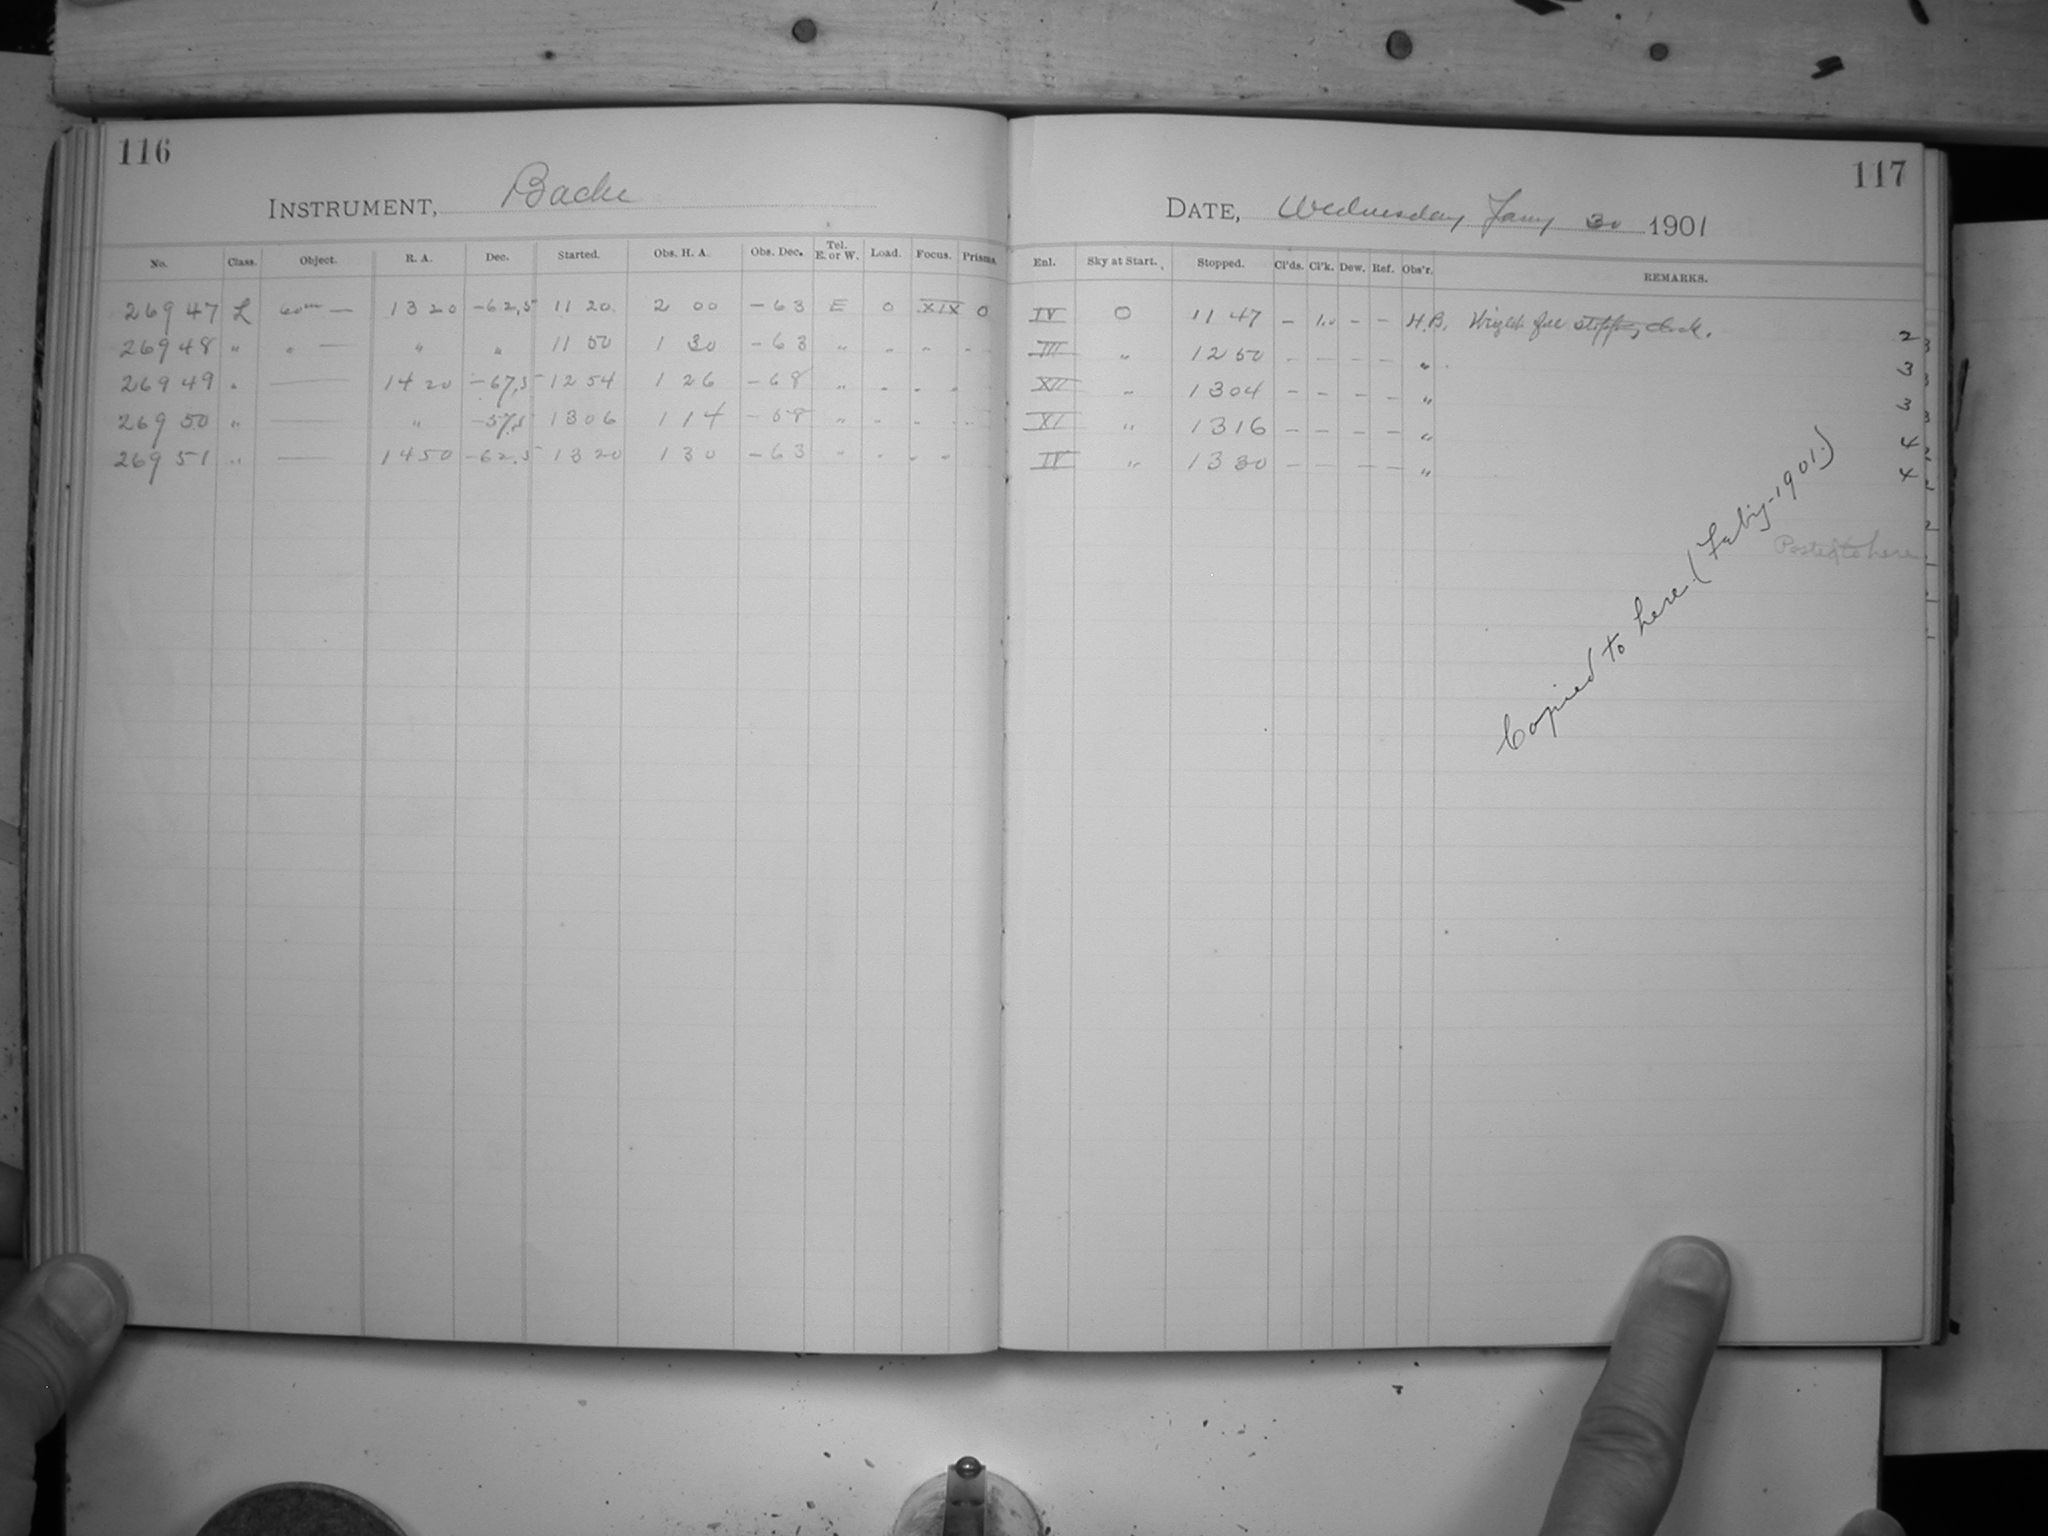 116
INSTRUMENT, Bache
No. Class. Object. R. A. Dec. Started. Obs. H. A. Obs. Dec. Tel. E. or W. Load. Focus. Prisms.
26947 L 60m — 13 20 -62,5 11 20 2 00 -63 E 0 XIX 0
26948 " " — " " 11 50 1 30 -63 " " " "
26949 " — 14 20 -67,5 12 54 1 26 -68 " " " "
26950 " — " -57,5 13 06 1 14 -58 " " " "
26951 " — 14 50 -62,5 13 20 1 30 -63 " " " "
117
DATE, Wednesday Jany 30 1901
Enl. Sky at Start. Stopped. Cl'ds. Cl'k. Dew. Ref. Obs'r. REMARKS.
IV 0 11 47 – 1.0 – – H.B. Weight fell stopping clock. 2
III " 12 50 – – – – " 3
XII " 13 04 – – – – " 3
XI " 13 16 – – – – " 4
IV " 13 30 – – – – " 4
Posted to here
Copied to here. (Feb'y-1901.)